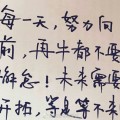 每一天，努力向
前，再牛都不要
懈怠！未来需要
开拓，等是等不来